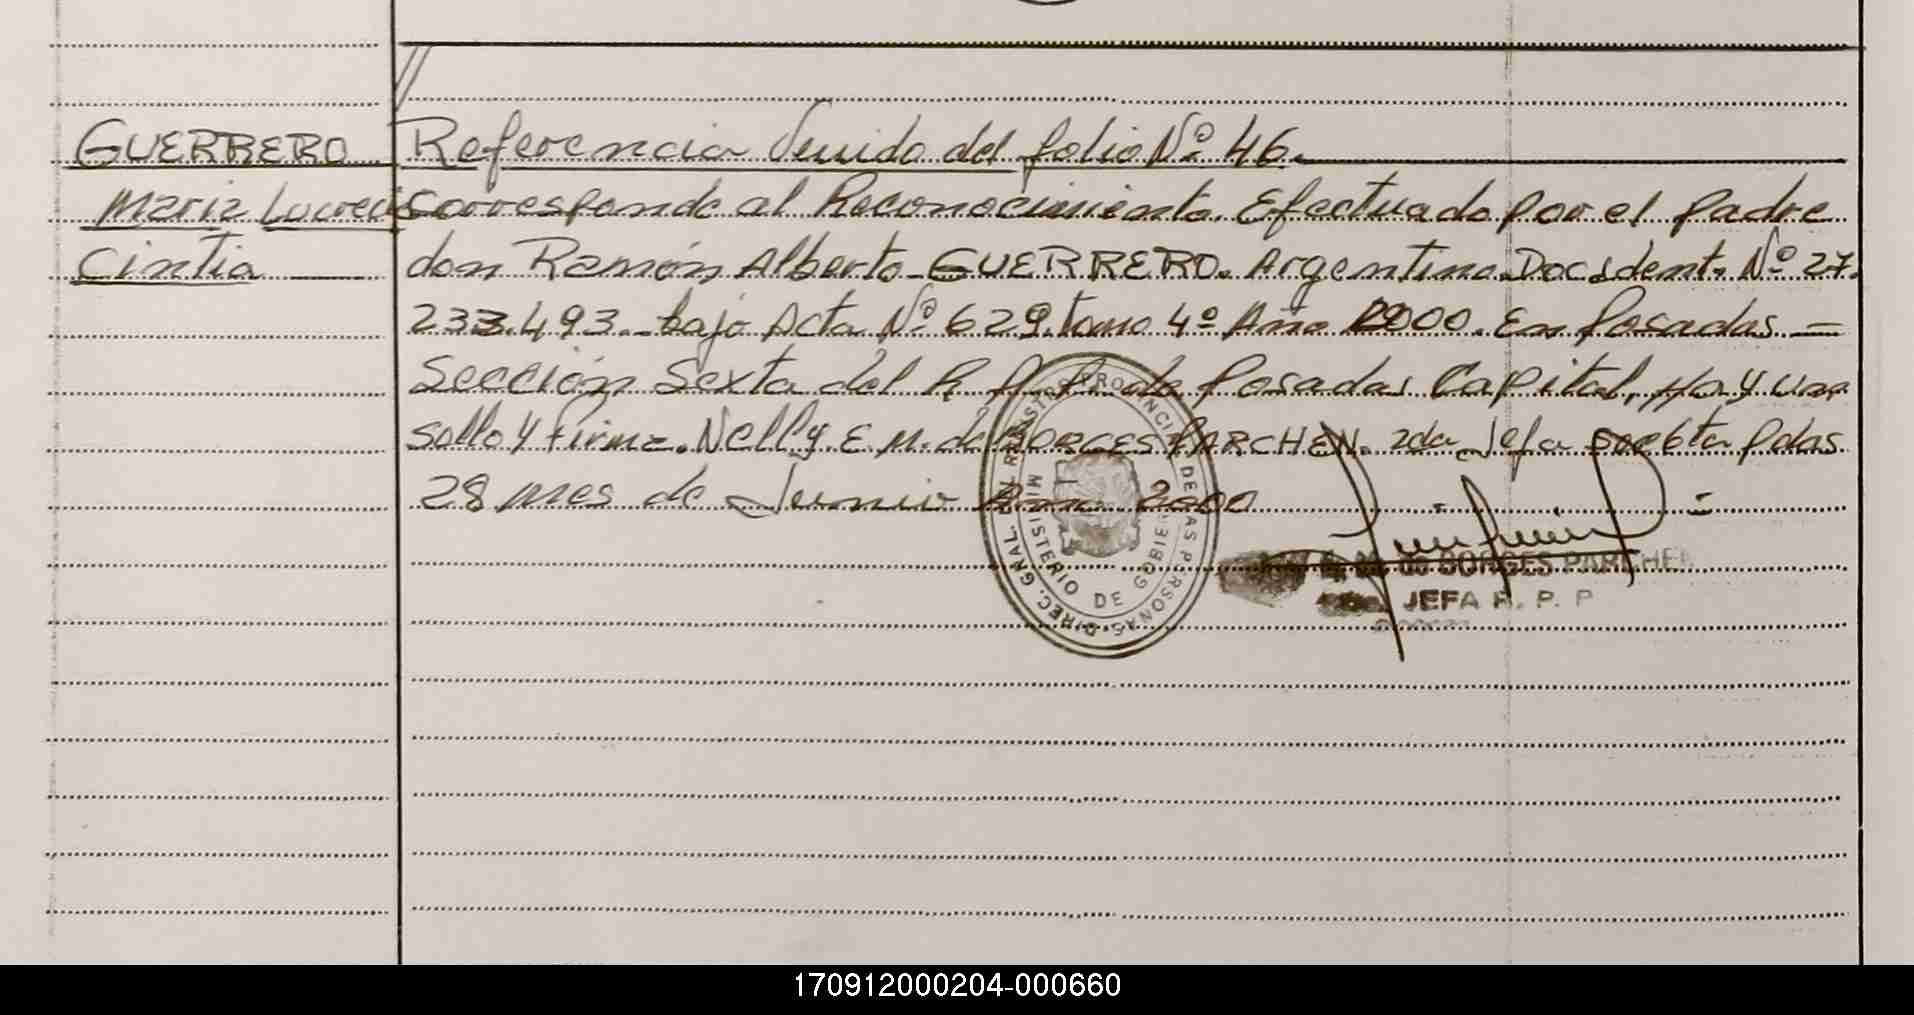 GUERRERO
Maria Lucrecia
Cintia
Referencia Venido del folio Nº 46.
Corresponde al Reconocimiento. Efectuado por el padre
don Ramón Alberto GUERRERO. Argentino. Doc. Ident. Nº 27.
233.493. bajo Acta Nº 629. tomo 4º Año 2000. En Posadas
Sección Sexta del R. P. P. de Posadas Capital, Hay un
sello y Firma. Nelly. E. M. de BORGES PARCHEN. 2da Jefa Pdas.
28 mes de Junio Año 2000
DIREC. GRAL. REGISTRO PROVINCIAL DE LAS PERSONAS
MINISTERIO DE GOBIERNO
E. M. de BORGES PARCHEN
JEFA R. P. P
170912000204-000660